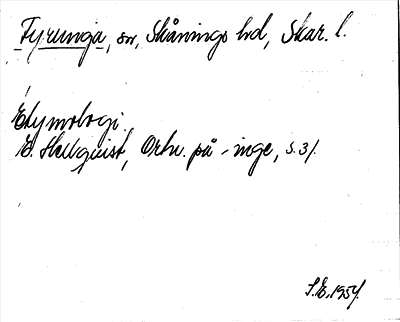 Fyrunga, sn, Skånings hd, Skar. l.
Etymologi.
E. Hellquist, Ortn. på -inge, s. 31.
S.E. 1954.